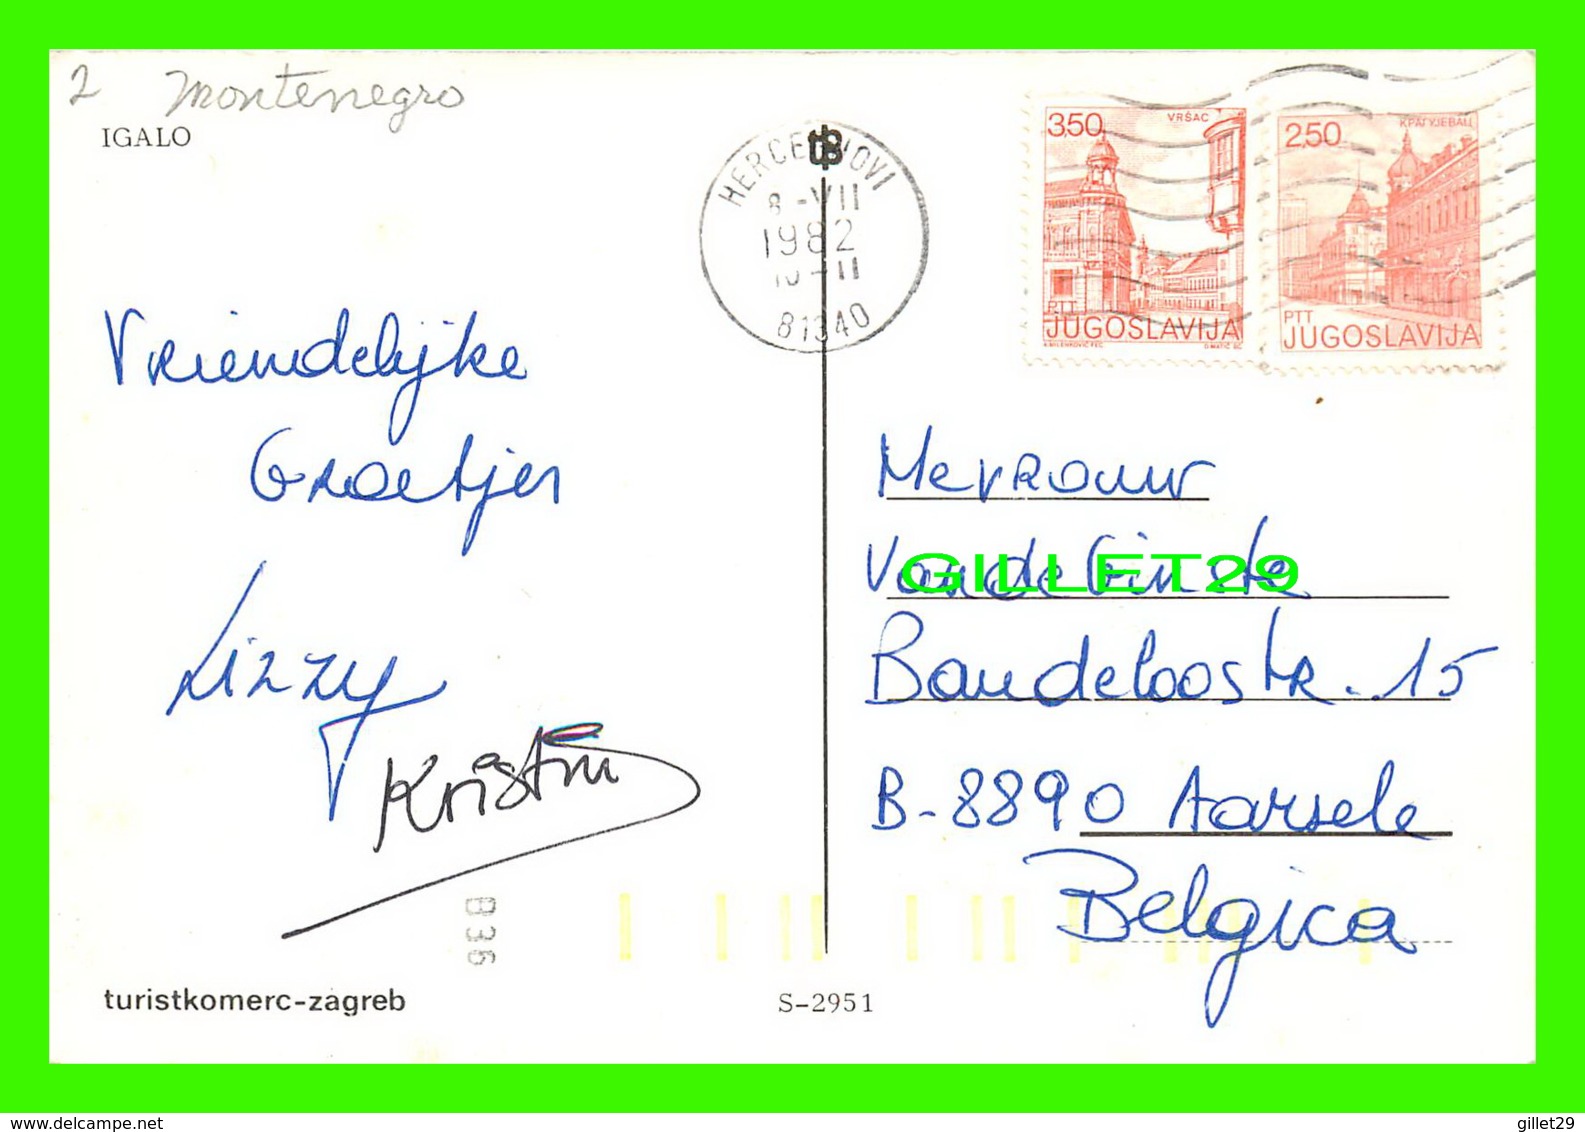 2 Montenegro
IGALO
HERCEG NOVI
8-VII
1982
10-11
81340
3,50
VRŠAC
PTT
JUGOSLAVIJA
2,50
КРАГУЈЕВАЦ
PTT
JUGOSLAVIJA
Vriendelijke
Groetjes
Lizzy
Kristin
Mevrouw
Vandeginste
GILLET29
Baudeloostr. 15
B-8890 Aarsele
Belgica
B36
turistkomerc-zagreb
S-2951
www.delcampe.net
gillet29